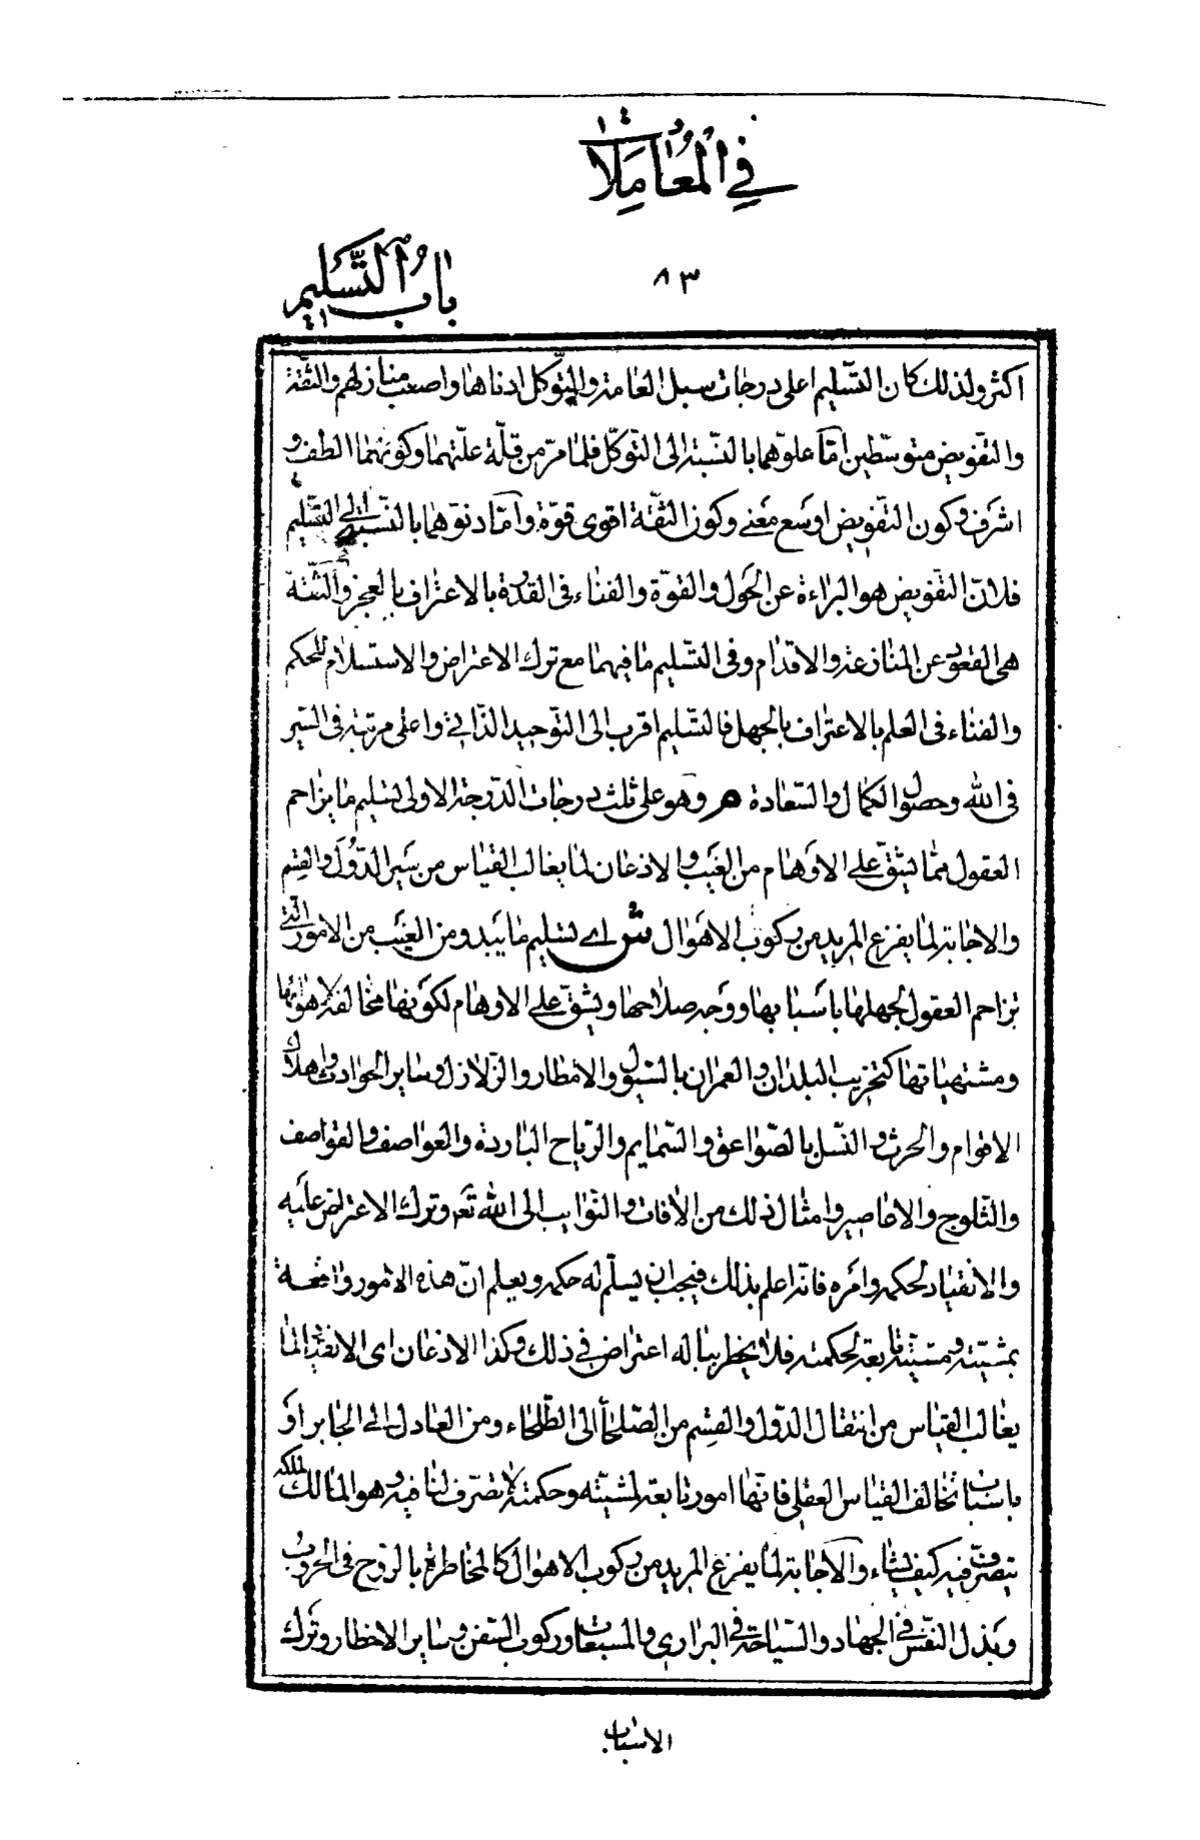 في المعاملات
۸۳
باب التسليم
اكثر ولذلك كان التسليم اعلى درجات سبل العامة والتوكل ادناها واصعب منازلهم والثقة
والتفويض متوسطين امّا علوّهما بالنسبة الى التوكّل فلما مرّ من قلّة علّتهما وكونهما الطف و
اشرف وكون التفويض اوسع معنى وكون الثقة اقوى قوّة وامّا دنوّهما بالنسبة الى التسليم
فلانّ التفويض هو البراءة عن الحول والقوّة والفناء فى القدرة بالاعتراف بالعجز والثقة
هى القعود عن المنازعة والاقدام وفى التسليم ما فيهما مع ترك الاعتراض والاستسلام للحكم
والفناء فى العلم بالاعتراف بالجهل فالتسليم اقرب الى التوحيد الذّاتي واعلى مرتبة فى السير
فى الله وحصول الكمال والسعادة م وهو على ثلث درجات الدّرجة الاولى تسليم ما يزاحم
العقول ممّا يشقّ على الاوهام من الغيب والاذعان لما يغالب القياس من سير الدّول والقسم
والاجابة لما يفزع المريد من ركوب الاهوال ش اى تسليم ما يبدو من الغيب من الامور التى
تزاحم العقول لجهلها باسبابها ووجه صلاحها ويشقّ على الاوهام لكونها مخالفة لاهوائها
ومشتهياتها كتخريب البلدان والعمران بالسيول والامطار والزلازل وساير الحوادث واهلاك
الاقوام والحرث والنسل بالصّواعق والسمايم والرياح الباردة والعواصف والقواصف
والثلوج والاعاصير وامثال ذلك من الآفات والنوايب الى الله تعه وترك الاعتراض عليه
والانقياد لحكمه وامره فانّه اعلم بذلك فيجب ان يسلّم له حكمه ويعلم انّ هذه الامور واقعة
بمشيّته ومشيّته تابعة لحكمته فلا يخطر بباله اعتراض في ذلك وكذا الاذعان اى الانقياد لما
يغالب القياس من انتقال الدّول والقسم من الصّلحاء الى الطّلحاء ومن العادل الى الجابر او
باسباب تخالف القياس العقلى فانّها امور تابعة لمشيّته وحكمته لا تصرّف لنا فيه وهو المالك لملكه
يتصرّف فيه كيف يشاء والاجابة لما يفزع المريد من ركوب الاهوال كالمخاطرة بالروح فى الحروب
وبذل النفس في الجهاد والسّياحة في البرارى والمسبعات وركوب السفن وساير الاخطار وترك
الاسباب